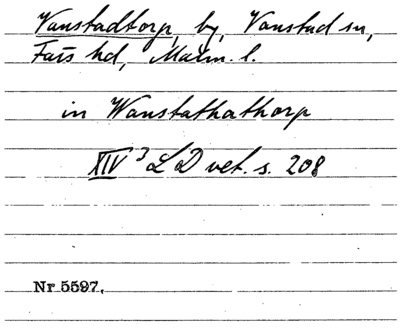 Vanstadtorp, by, Vanstad sn,
Färs hd, Malm. l.
in Wanstathathorp
XIV 3 LD vet. s. 208
Nr 5597.